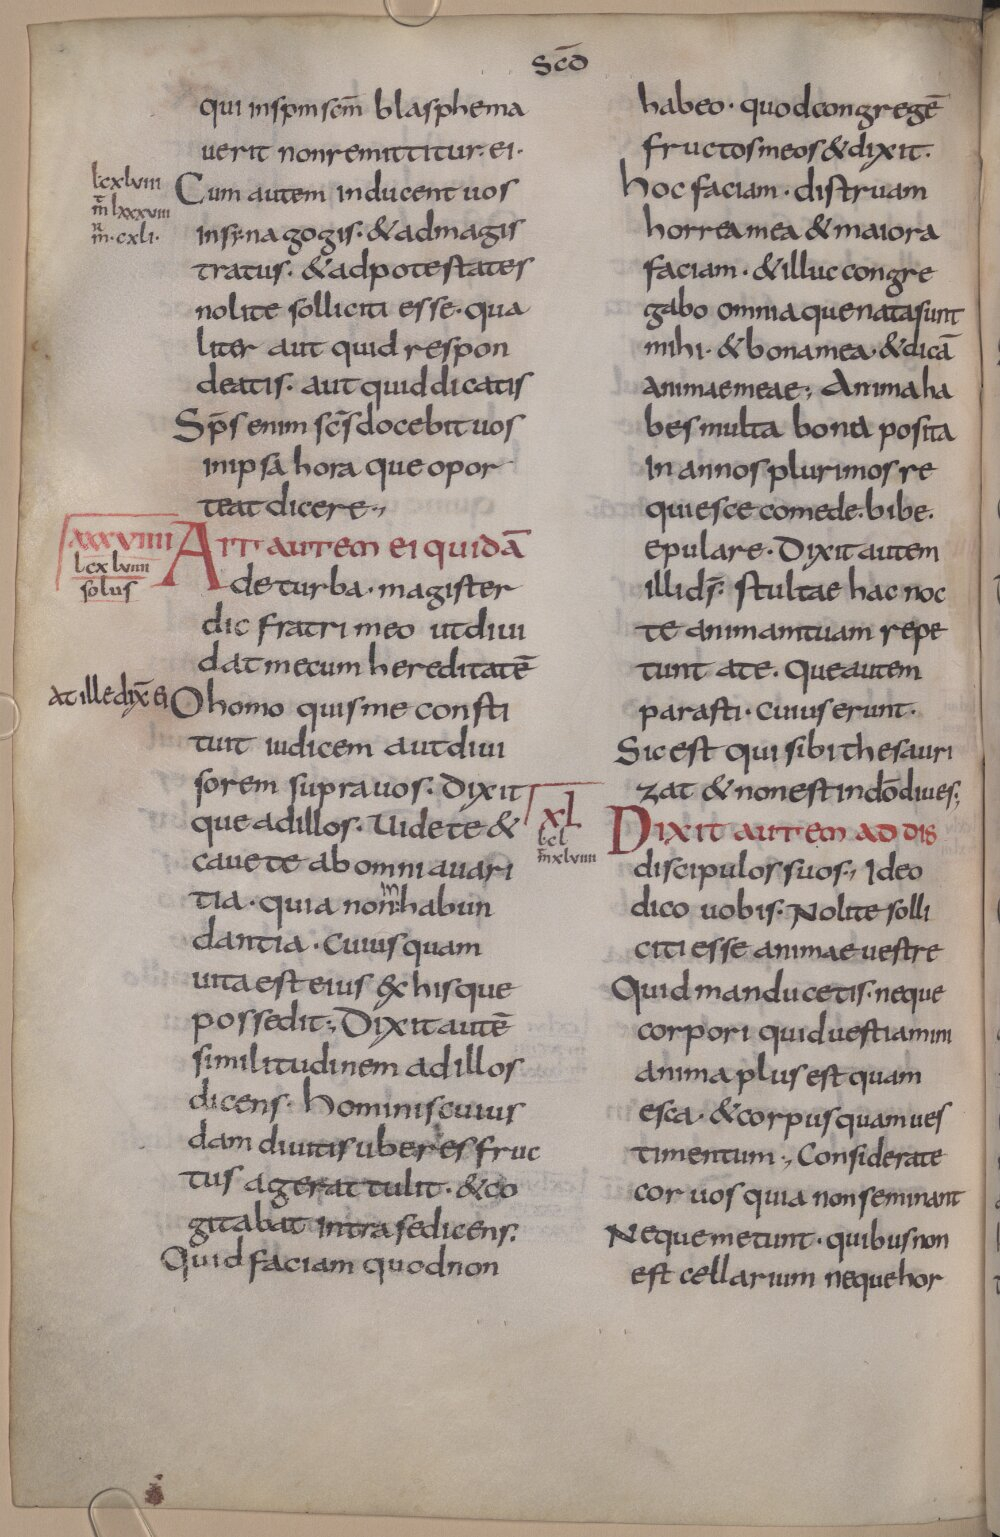 scd̄
qui in spm scm̄ blasphema
uerit non remittitur ei·
lcxlviii
m̄ lxxxviii
m̄· cxli·
Cum autem inducent uos
in synagogis· & ad magis
tratus· & ad potestates
nolite solliciti esse· qua
liter aut quid respon
deatis· aut quid dicatis
Sp̄s enim sc̄s docebit uos
in ipsa hora que opor
teat dicere·,
xxxviiii
lcxlviiii
solus
Ait autem ei quidā
de turba· magister
dic fratri meo ut diui
dat mecum hereditatē
at ille dix̄ ei
O homo quis me consti
tuit iudicem aut diui
sorem supra uos· Dixit
que ad illos· Uidete &
cauete ab omni auari
tia· quia non in habun
dantia· cuius quam
uita est eius ex his que
possedit·, Dixit autē
similitudinem ad illos
dicens· hominis cuius
dam diuitis uberes fruc
tus ager attulit· & co
gitabat intra se dicens·
Quid faciam quod non
habeo· quod congregē
fructos meos & dixit·
hoc faciam· distruam
horrea mea & maiora
faciam· & illuc congre
gabo omnia que nata sunt
mihi· & bona mea· & dicā
animae meae·, Anima ha
bes multa bona posita
in annos plurimos re
quiesce comede· bibe·
epulare· Dixit autem
illi ds̄· stultae hac noc
te animam tuam repe
tunt a te· Que autem
parasti· cuius erunt·
Sic est qui sibi thesauri
zat & non est in dō diues·,
xl
lcl
m̄xlviiii
Dixit autem ad dis
discipulos suos·, Ideo
dico uobis· Nolite solli
citi esse animae uestre
Quid manducetis· neque
corpori quid uestiamini
anima plus est quam
esca· & corpus quam ues
timentum·, Considerate
cor uos quia non seminant
Neque metunt· quibus non
est cellarium neque hor